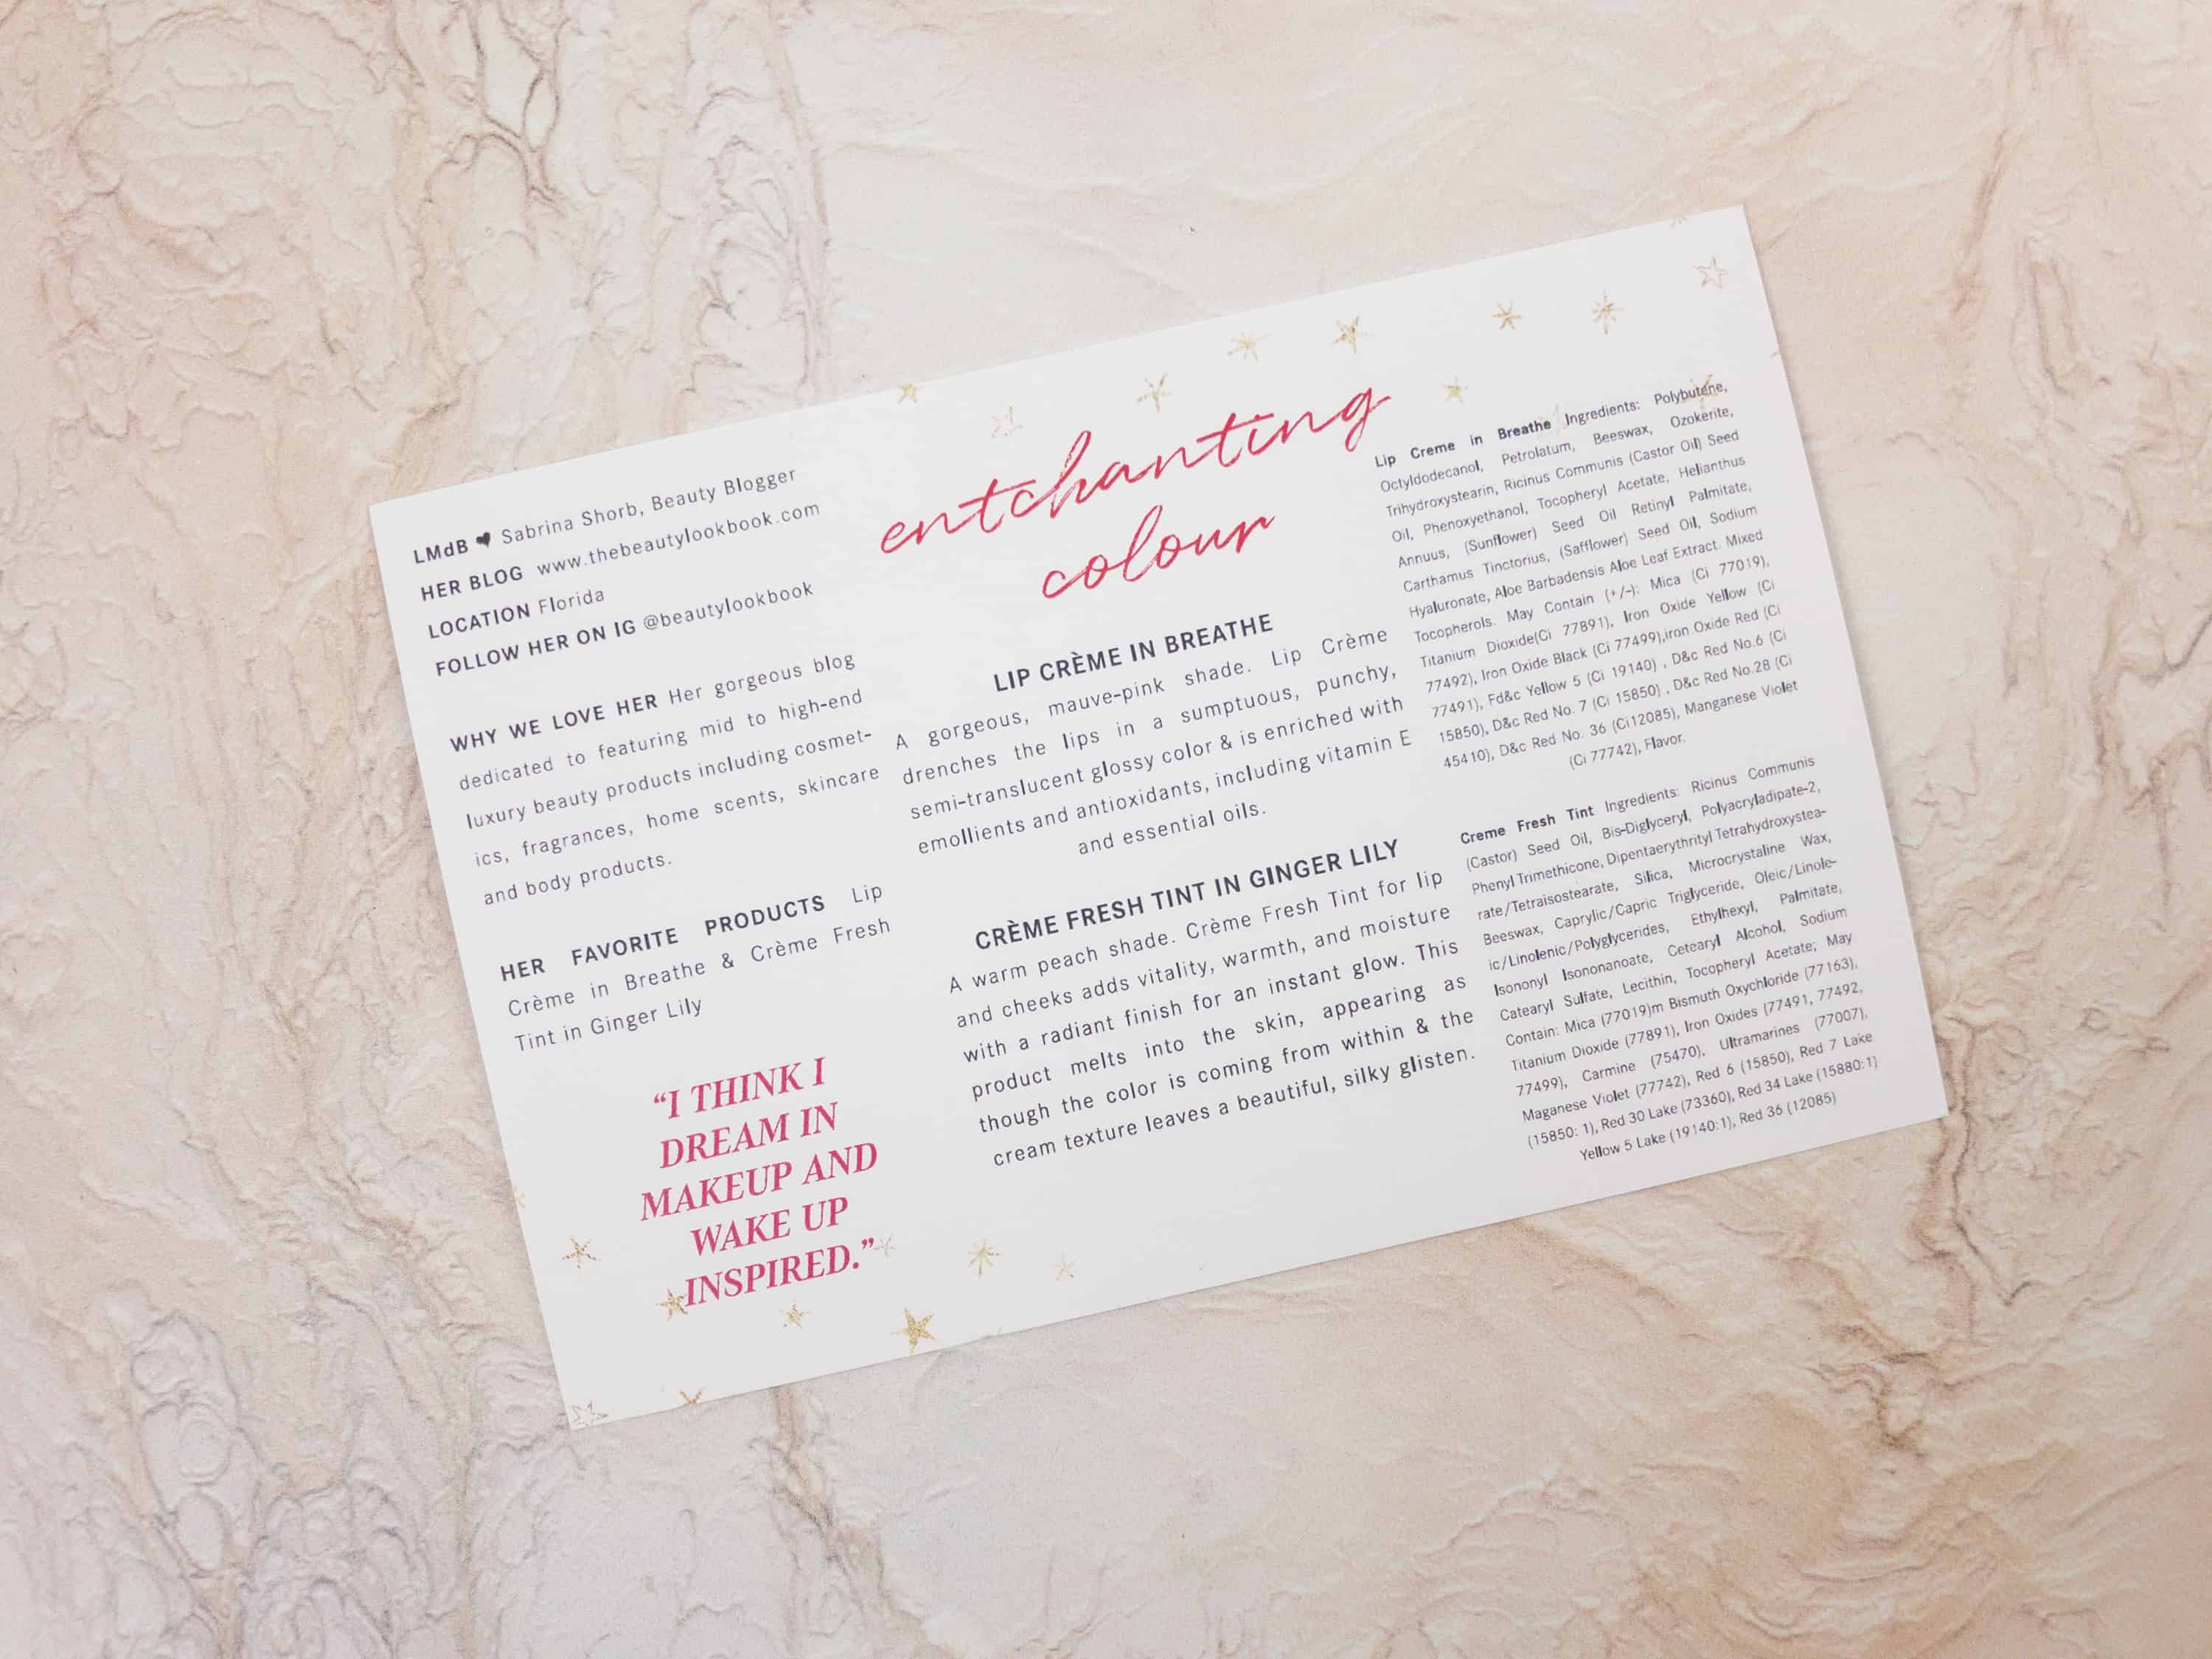 LMdB ♥ Sabrina Shorb, Beauty Blogger
HER BLOG www.thebeautylookbook.com
LOCATION Florida
FOLLOW HER ON IG @beautylookbook
WHY WE LOVE HER Her gorgeous blog
dedicated to featuring mid to high-end
luxury beauty products including cosmet-
ics, fragrances, home scents, skincare
and body products.
HER FAVORITE PRODUCTS Lip
Crème in Breathe & Crème Fresh
Tint in Ginger Lily
“I THINK I
DREAM IN
MAKEUP AND
WAKE UP
INSPIRED.”
entchanting
colour
LIP CRÈME IN BREATHE
A gorgeous, mauve-pink shade. Lip Crème
drenches the lips in a sumptuous, punchy,
semi-translucent glossy color & is enriched with
emollients and antioxidants, including vitamin E
and essential oils.
CRÈME FRESH TINT IN GINGER LILY
A warm peach shade. Crème Fresh Tint for lip
and cheeks adds vitality, warmth, and moisture
with a radiant finish for an instant glow. This
product melts into the skin, appearing as
though the color is coming from within & the
cream texture leaves a beautiful, silky glisten.
Lip Creme in Breathe Ingredients: Polybutene,
Octyldodecanol, Petrolatum, Beeswax, Ozokerite,
Trihydroxystearin, Ricinus Communis (Castor Oil) Seed
Oil, Phenoxyethanol, Tocopheryl Acetate, Helianthus
Annuus, (Sunflower) Seed Oil Retinyl Palmitate,
Carthamus Tinctorius, (Safflower) Seed Oil, Sodium
Hyaluronate, Aloe Barbadensis Aloe Leaf Extract. Mixed
Tocopherols. May Contain (+/-): Mica (Ci 77019),
Titanium Dioxide(Ci 77891), Iron Oxide Yellow (Ci
77492), Iron Oxide Black (Ci 77499),iron Oxide Red (Ci
77491), Fd&c Yellow 5 (Ci 19140) , D&c Red No.6 (Ci
15850), D&c Red No. 7 (Ci 15850) , D&c Red No.28 (Ci
45410), D&c Red No. 36 (Ci12085), Manganese Violet
(Ci 77742), Flavor.
Creme Fresh Tint Ingredients: Ricinus Communis
(Castor) Seed Oil, Bis-Diglyceryl, Polyacryladipate-2,
Phenyl Trimethicone, Dipentaerythrityl Tetrahydroxystea-
rate/Tetraisostearate, Silica, Microcrystaline Wax,
Beeswax, Caprylic/Capric Triglyceride, Oleic/Linole-
ic/Linolenic/Polyglycerides, Ethylhexyl, Palmitate,
Isononyl Isononanoate, Cetearyl Alcohol, Sodium
Catearyl Sulfate, Lecithin, Tocopheryl Acetate; May
Contain: Mica (77019)m Bismuth Oxychloride (77163),
Titanium Dioxide (77891), Iron Oxides (77491, 77492,
77499), Carmine (75470), Ultramarines (77007),
Maganese Violet (77742), Red 6 (15850), Red 7 Lake
(15850: 1), Red 30 Lake (73360), Red 34 Lake (15880:1)
Yellow 5 Lake (19140:1), Red 36 (12085)